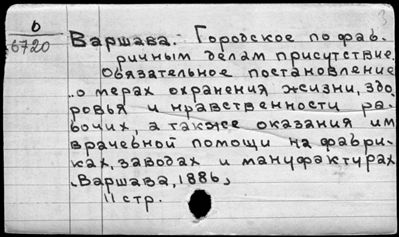 b
6720
3
Варшава. Городское по фаб-
ричным делам присутствие.
Обязательное постановление
„о мерах охранения жизни, здо-
ровья и нравственности ра-
бочих, а также оказания им
врачебной помощи на фабри-
ках, заводах и мануфактурах
„Варшава, 1886„
11 стр.